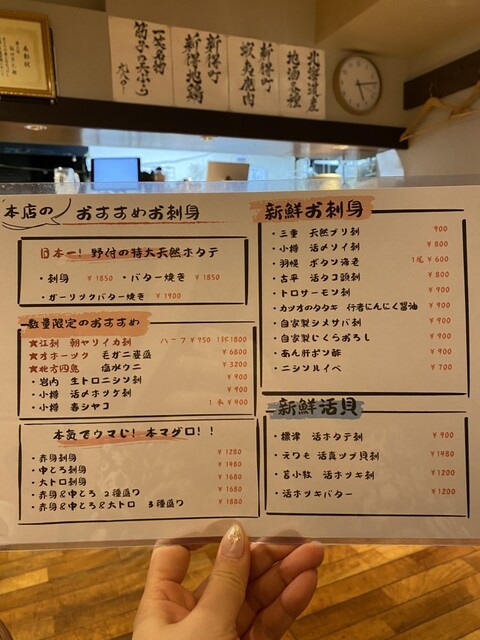 北海道産
地酒各種
新得町
蝦夷鹿肉
新得町
新得地鶏
一文名物
筋子の天ぷら
本店の おすすめお刺身
日本一！野付の特大天然ホタテ
・刺身 ¥1850 ・バター焼き ¥1850
・ガーリックバター焼き ¥1900
数量限定のおすすめ
★江刺 朝ヤリイカ刺 ハーフ¥950 1杯1800
★オホーツク 毛ガニ壺盛 ¥6800
★北方四島 塩水ウニ ¥3200
・岩内 生トロニシン刺 ¥900
・小樽 活〆ホッケ刺 ¥900
・小樽 春シャコ 1本¥400
本気でウマい！本マグロ！！
・赤身刺身 ¥1280
・中とろ刺身 ¥1480
・大トロ刺身 ¥1680
・赤身&中とろ 2種盛り ¥1680
・赤身&中とろ&大トロ 3種盛り ¥1880
新鮮お刺身
・三重 天然ブリ刺 900
・小樽 活〆ソイ刺 ¥800
・羽幌 ボタン海老 1尾¥600
・古平 活タコ頭刺 ¥800
・トロサーモン刺 ¥900
・カツオのタタキ 行者にんにく醤油 ¥900
・自家製シメサバ刺 ¥900
・自家製しくらおろし ¥900
・あん肝ポン酢 ¥900
・ニシンルイベ ¥700
新鮮活貝
・標津 活ホタテ刺 ¥900
・えりも 活真ツブ貝刺 ¥1480
・苫小牧 活ホッキ刺 ¥1200
・活ホッキバター ¥1200